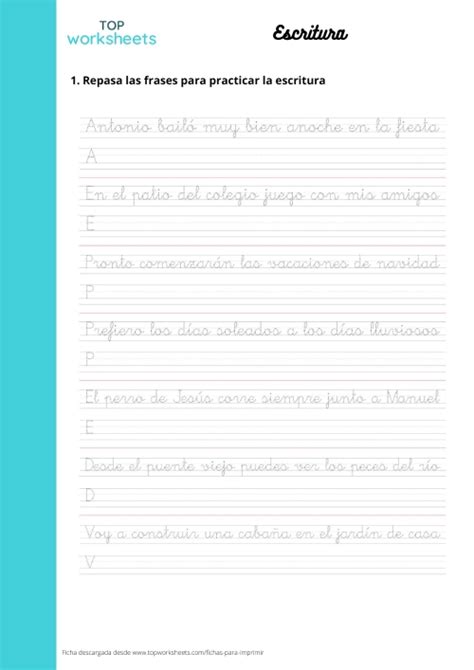 TOP
worksheets
Escritura
1. Repasa las frases para practicar la escritura
Antonio bailó muy bien anoche en la fiesta
A
En el patio del colegio juego con mis amigos
E
Pronto comenzarán las vacaciones de navidad
P
Prefiero los días soleados a los días lluviosos
P
El perro de Jesús corre siempre junto a Manuel
E
Desde el puente viejo puedes ver los peces del río
D
Voy a construir una cabaña en el jardín de casa
V
Ficha descargada desde www.topworksheets.com/fichas-para-imprimir